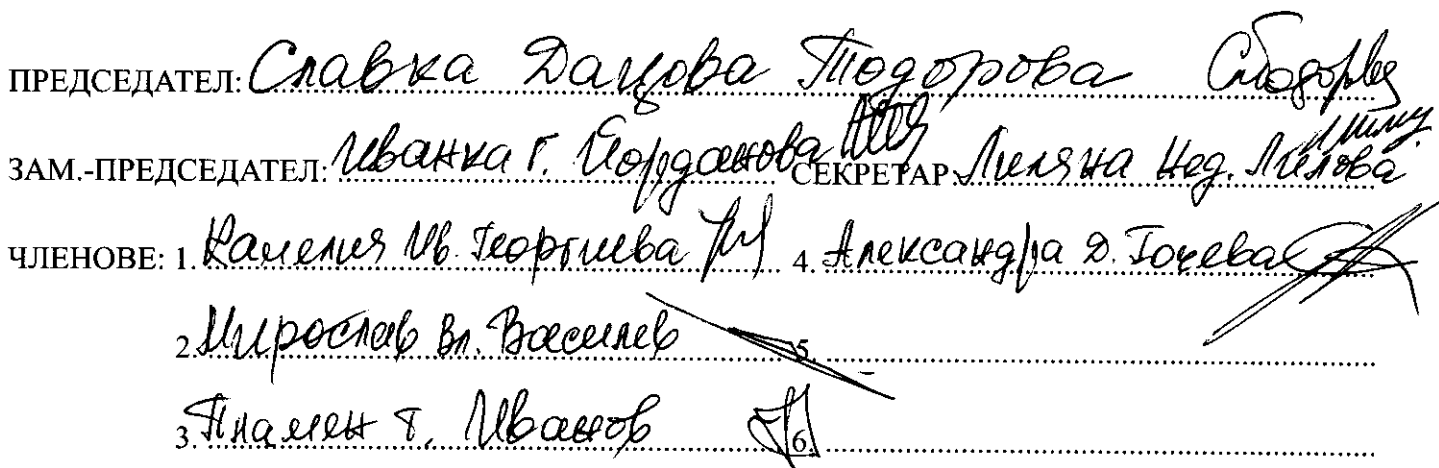 ПРЕДСЕДАТЕЛ: Славка Дацова Тодорова
ЗАМ.-ПРЕДСЕДАТЕЛ: Иванка Г. Йорданова СЕКРЕТАР: Лиляна Нед. Лилова
ЧЛЕНОВЕ: 1. Камелия Ив. Георгиева 4. Александра Д. Гочева
2. Мирослав Вл. Василев 5.
3. Пламен Т. Иванов 6.